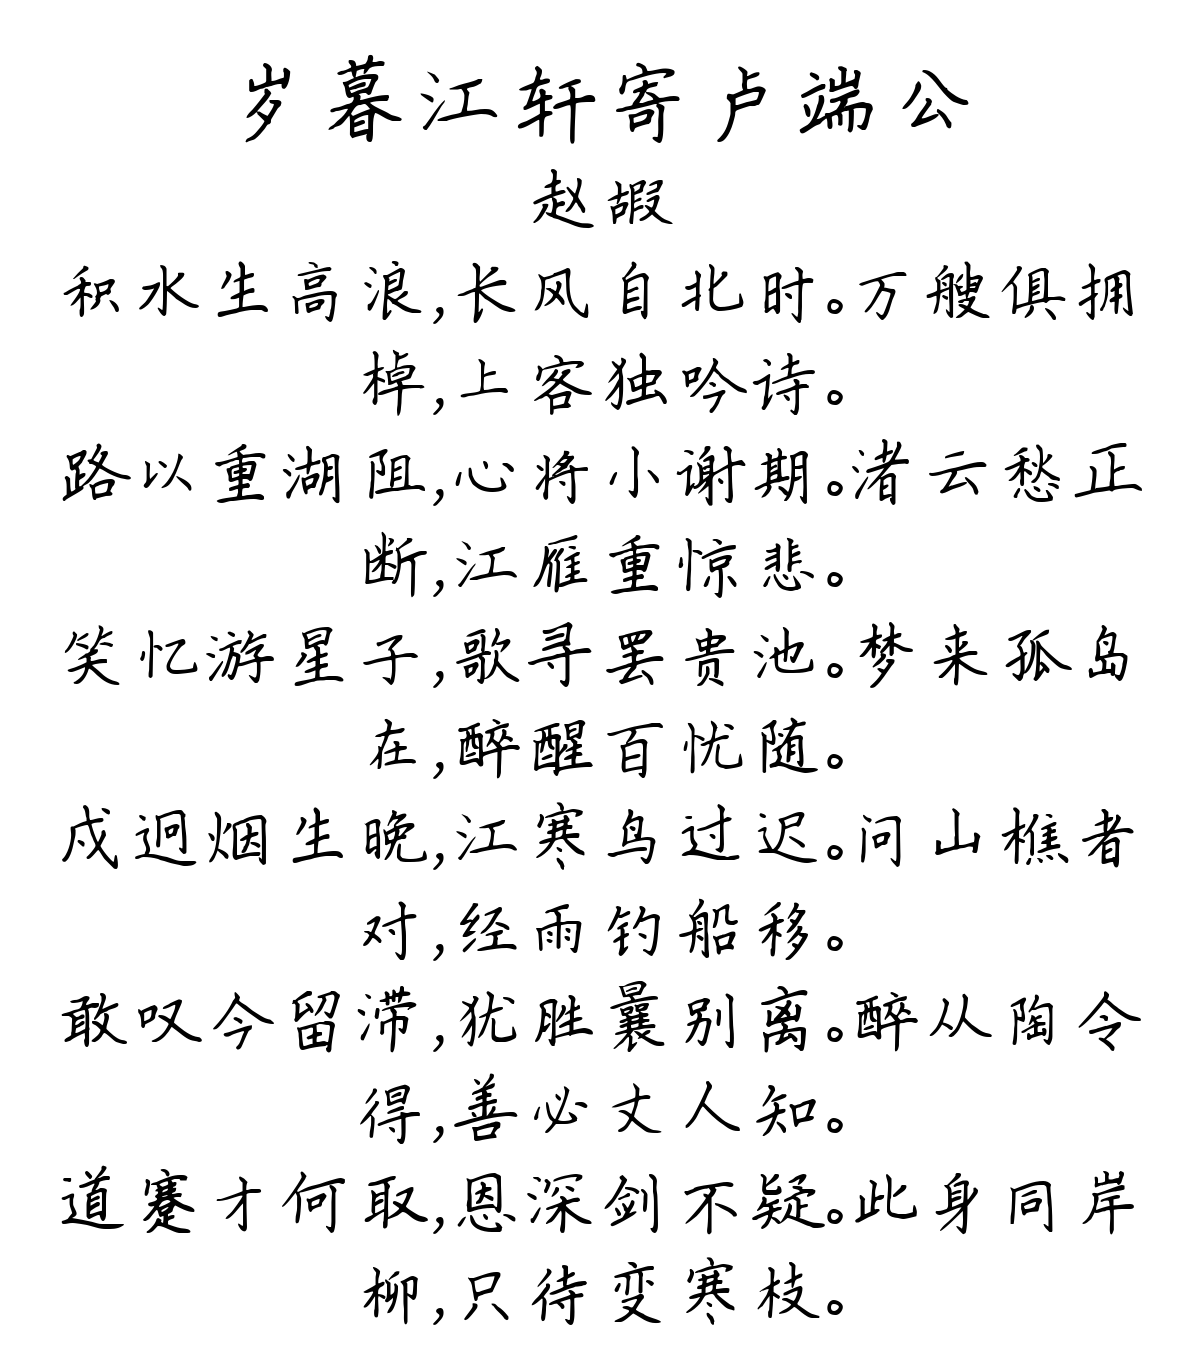 岁暮江轩寄卢端公
赵嘏
积水生高浪,长风自北时。万艘俱拥
棹,上客独吟诗。
路以重湖阻,心将小谢期。渚云愁正
断,江雁重惊悲。
笑忆游星子,歌寻罢贵池。梦来孤岛
在,醉醒百忧随。
戍迥烟生晚,江寒鸟过迟。问山樵者
对,经雨钓船移。
敢叹今留滞,犹胜曩别离。醉从陶令
得,善必丈人知。
道蹇才何取,恩深剑不疑。此身同岸
柳,只待变寒枝。